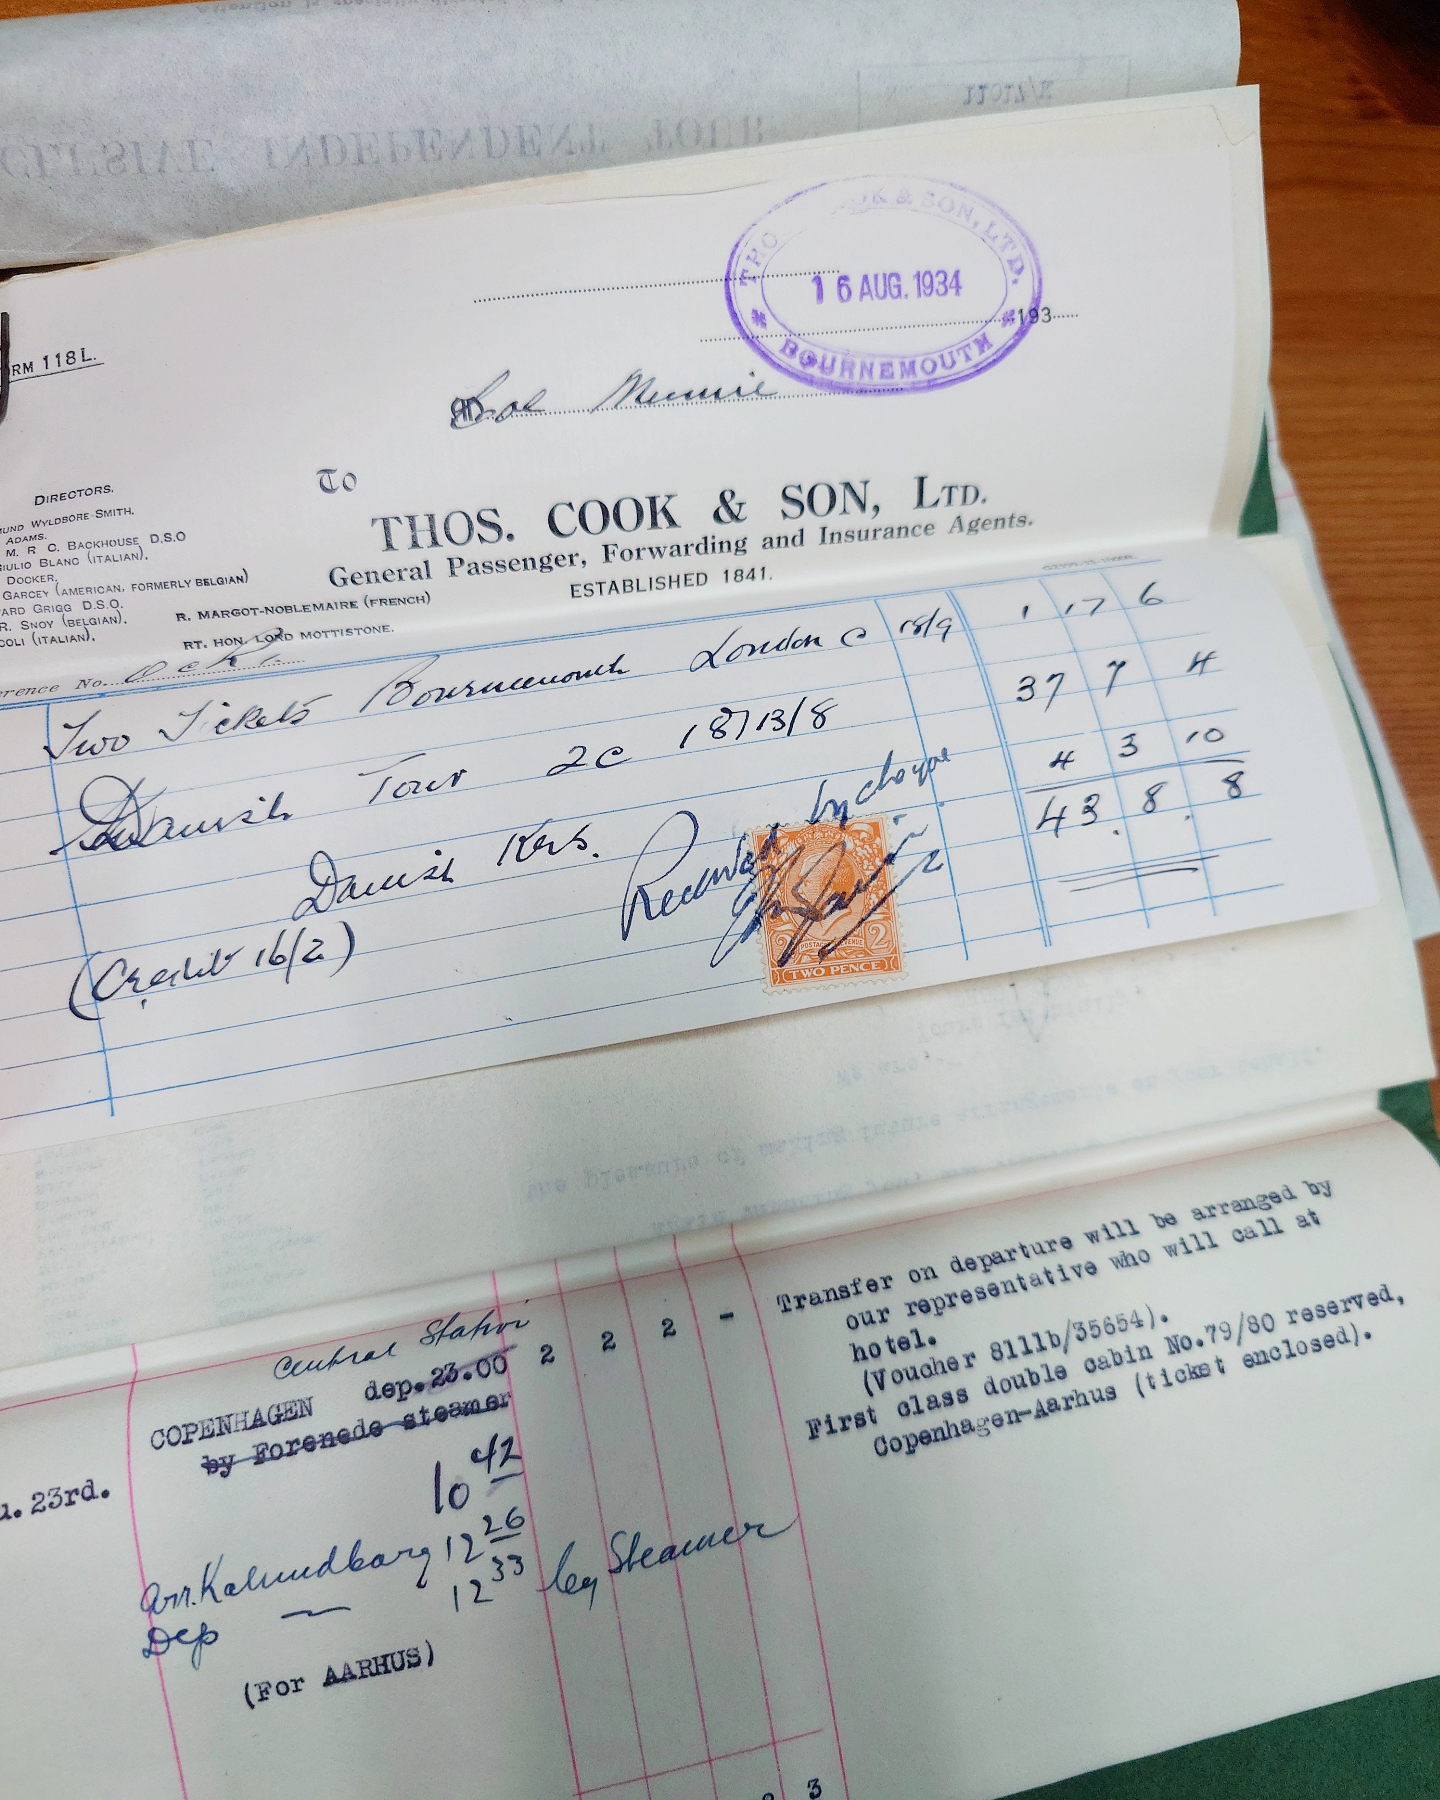 INDEPENDENT TOUR
THOS. COOK & SON, LTD.
16 AUG. 1934
BOURNEMOUTH
193
118L.
To
THOS. COOK & SON, LTD.
General Passenger, Forwarding and Insurance Agents.
ESTABLISHED 1841.
DIRECTORS.
WYLDBORE-SMITH,
ADAMS.
M. R. C. BACKHOUSE D.S.O
BLANC (ITALIAN).
DOCKER,
GARCEY (AMERICAN, FORMERLY BELGIAN)
GRIGG D.S.O.
R. SNOY (BELGIAN).
R. MARGOT-NOBLEMAIRE (FRENCH)
(ITALIAN).
RT. HON. LORD MOTTISTONE.
No.
Two Tickets Bournemouth London C 18/9 1 17 6
Danish Tour 2C 18/13/8 37 7 4
Danish Krs. 4 3 10
43. 8. 8
Received by cheque
(Credit 16/2)
POSTAGE REVENUE
2 2
TWO PENCE
Central Station
COPENHAGEN dep.23.00 2 2 2 -
by Forenede steamer
23rd.
10 42
Arr. Kalundborg 12 26
Dep 12 33 by Steamer
(For AARHUS)
Transfer on departure will be arranged by
our representative who will call at
hotel.
(Voucher 8111b/35654).
First class double cabin No.79/80 reserved,
Copenhagen-Aarhus (ticket enclosed).
3